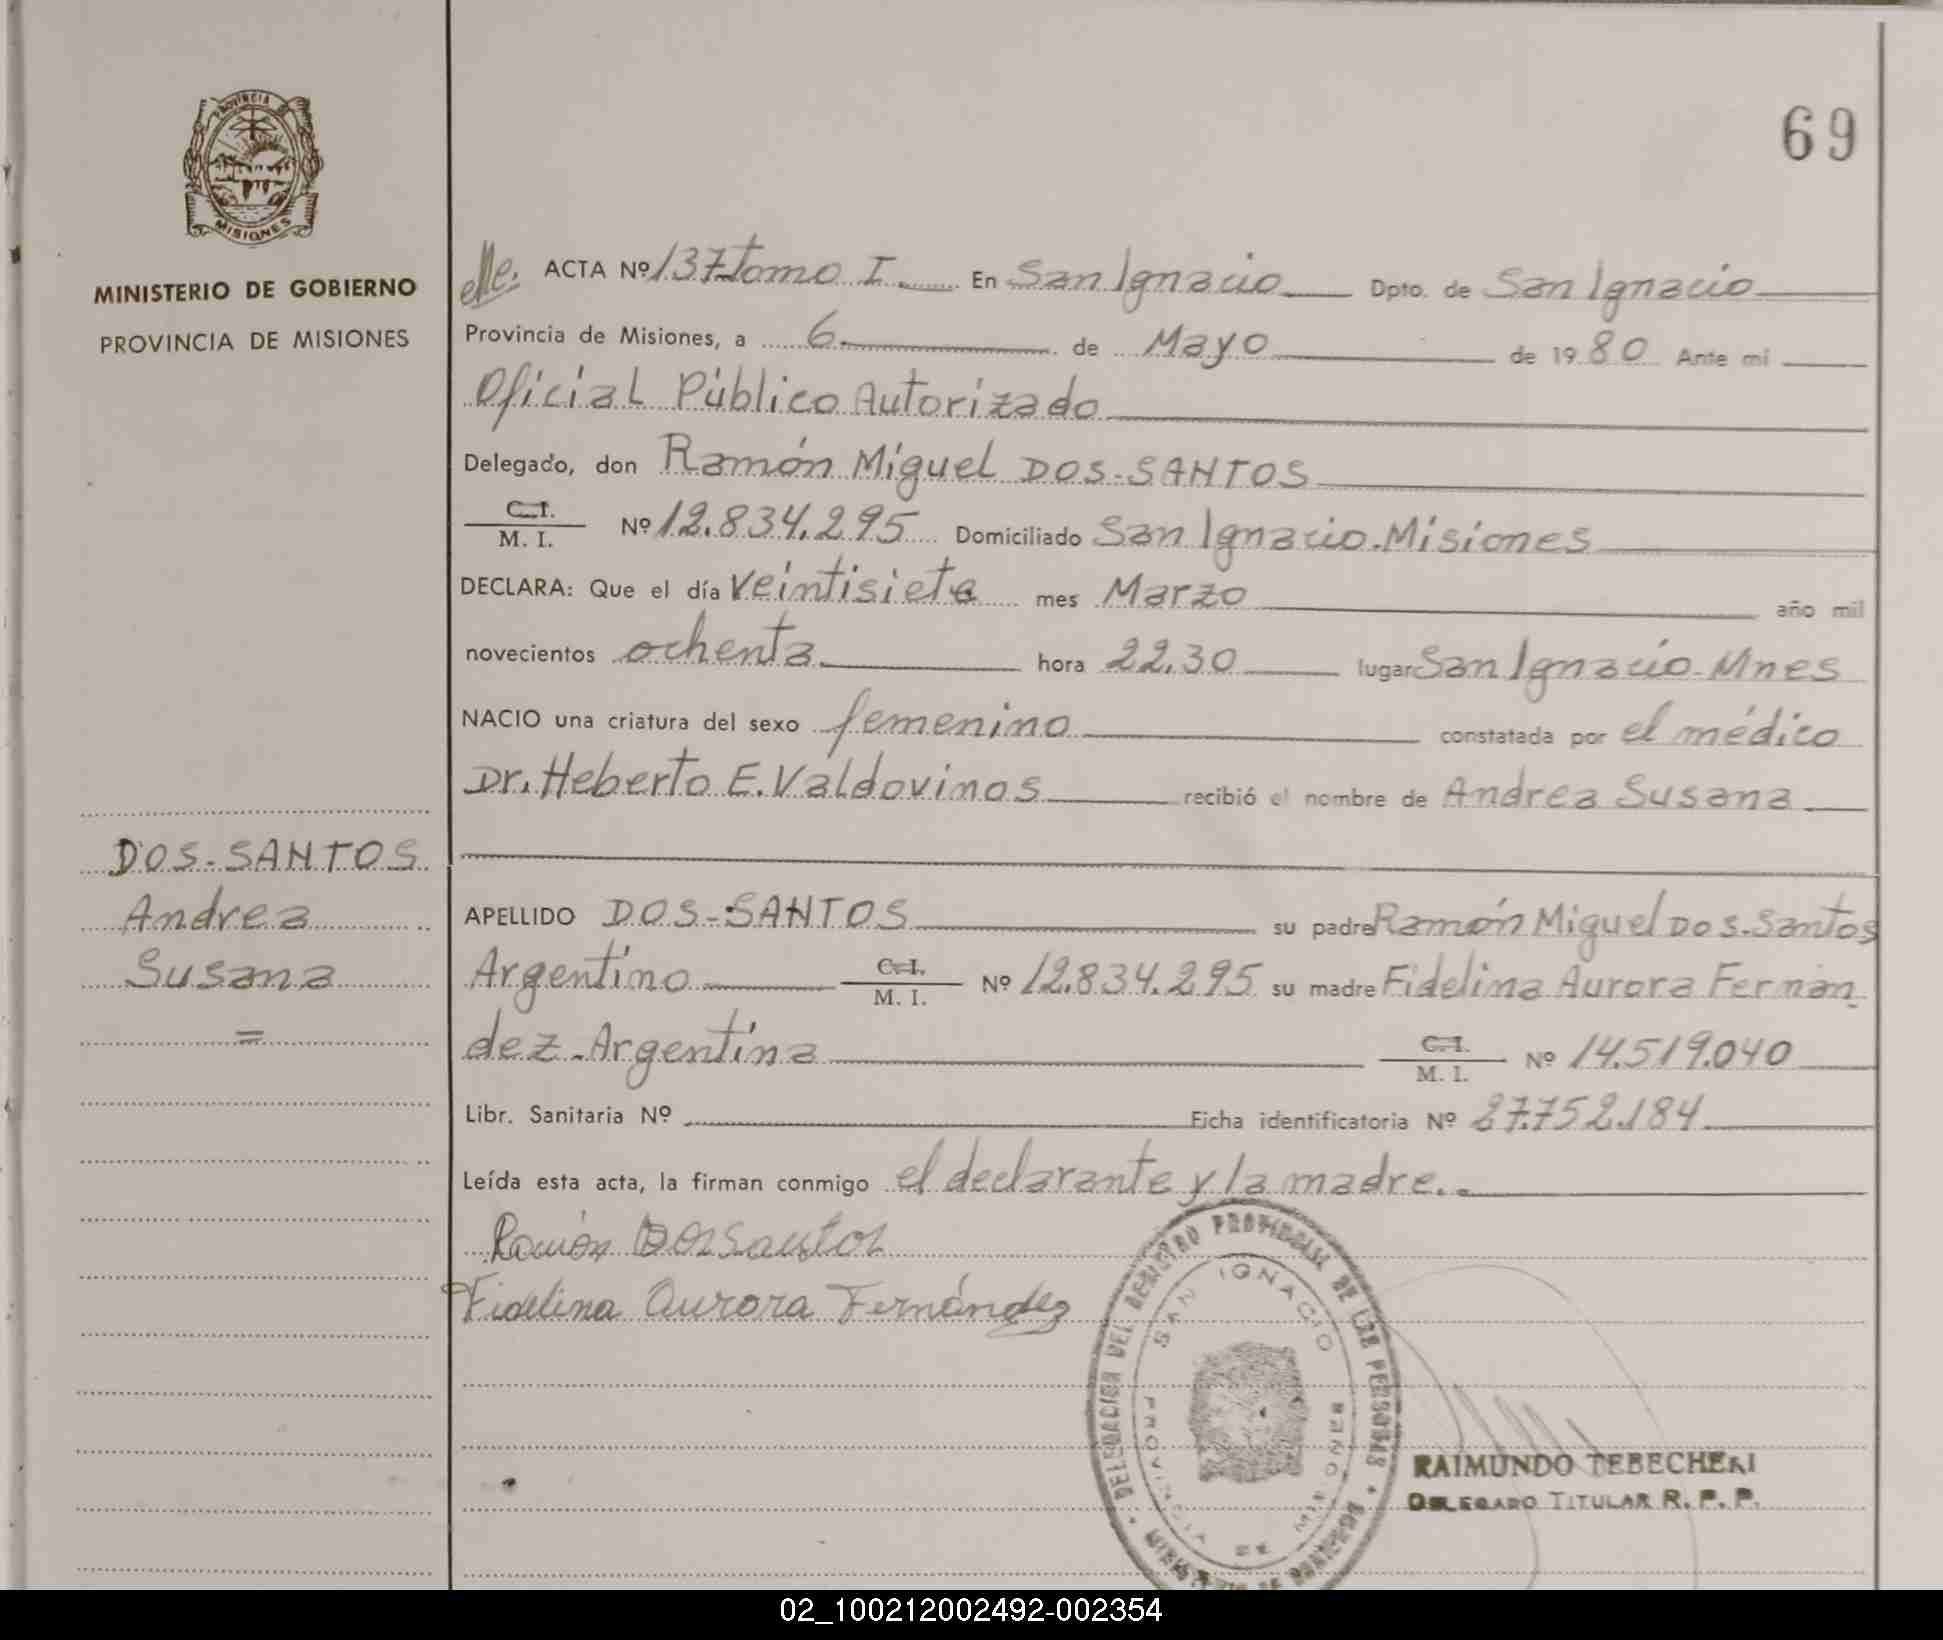 69
PROVINCIA
MISIONES
MINISTERIO DE GOBIERNO
PROVINCIA DE MISIONES
DOS-SANTOS
Andrea
Susana
=
ACTA Nº 137 Tomo I En San Ignacio Dpto. de San Ignacio
Provincia de Misiones, a 6 de Mayo de 1980 Ante mi
Oficial Público Autorizado
Delegado, don Ramón Miguel DOS-SANTOS
C. I.
M. I. Nº 12.834.295 Domiciliado San Ignacio-Misiones
DECLARA: Que el día veintisiete mes Marzo año mil
novecientos ochenta hora 22.30 lugar San Ignacio-Mnes
NACIO una criatura del sexo femenino constatada por el médico
Dr. Heberto E. Valdovinos recibió el nombre de Andrea Susana
APELLIDO DOS-SANTOS su padre Ramón Miguel Dos-Santos
Argentino C. I. M. I. Nº 12.834.295 su madre Fidelina Aurora Fernán
dez-Argentina C. I. M. I. Nº 14.519.040
Libr. Sanitaria Nº Ficha identificatoria Nº 27.752.184
Leída esta acta, la firman conmigo el declarante y la madre.-
Ramón Dos Santos
Fidelina Aurora Fernández
DELEGACION DEL REGISTRO PROVINCIAL DE LAS PERSONAS
SAN IGNACIO
PROVINCIA DE
RAIMUNDO TEBECHERI
DELEGADO TITULAR R. P. P.
02_100212002492-002354